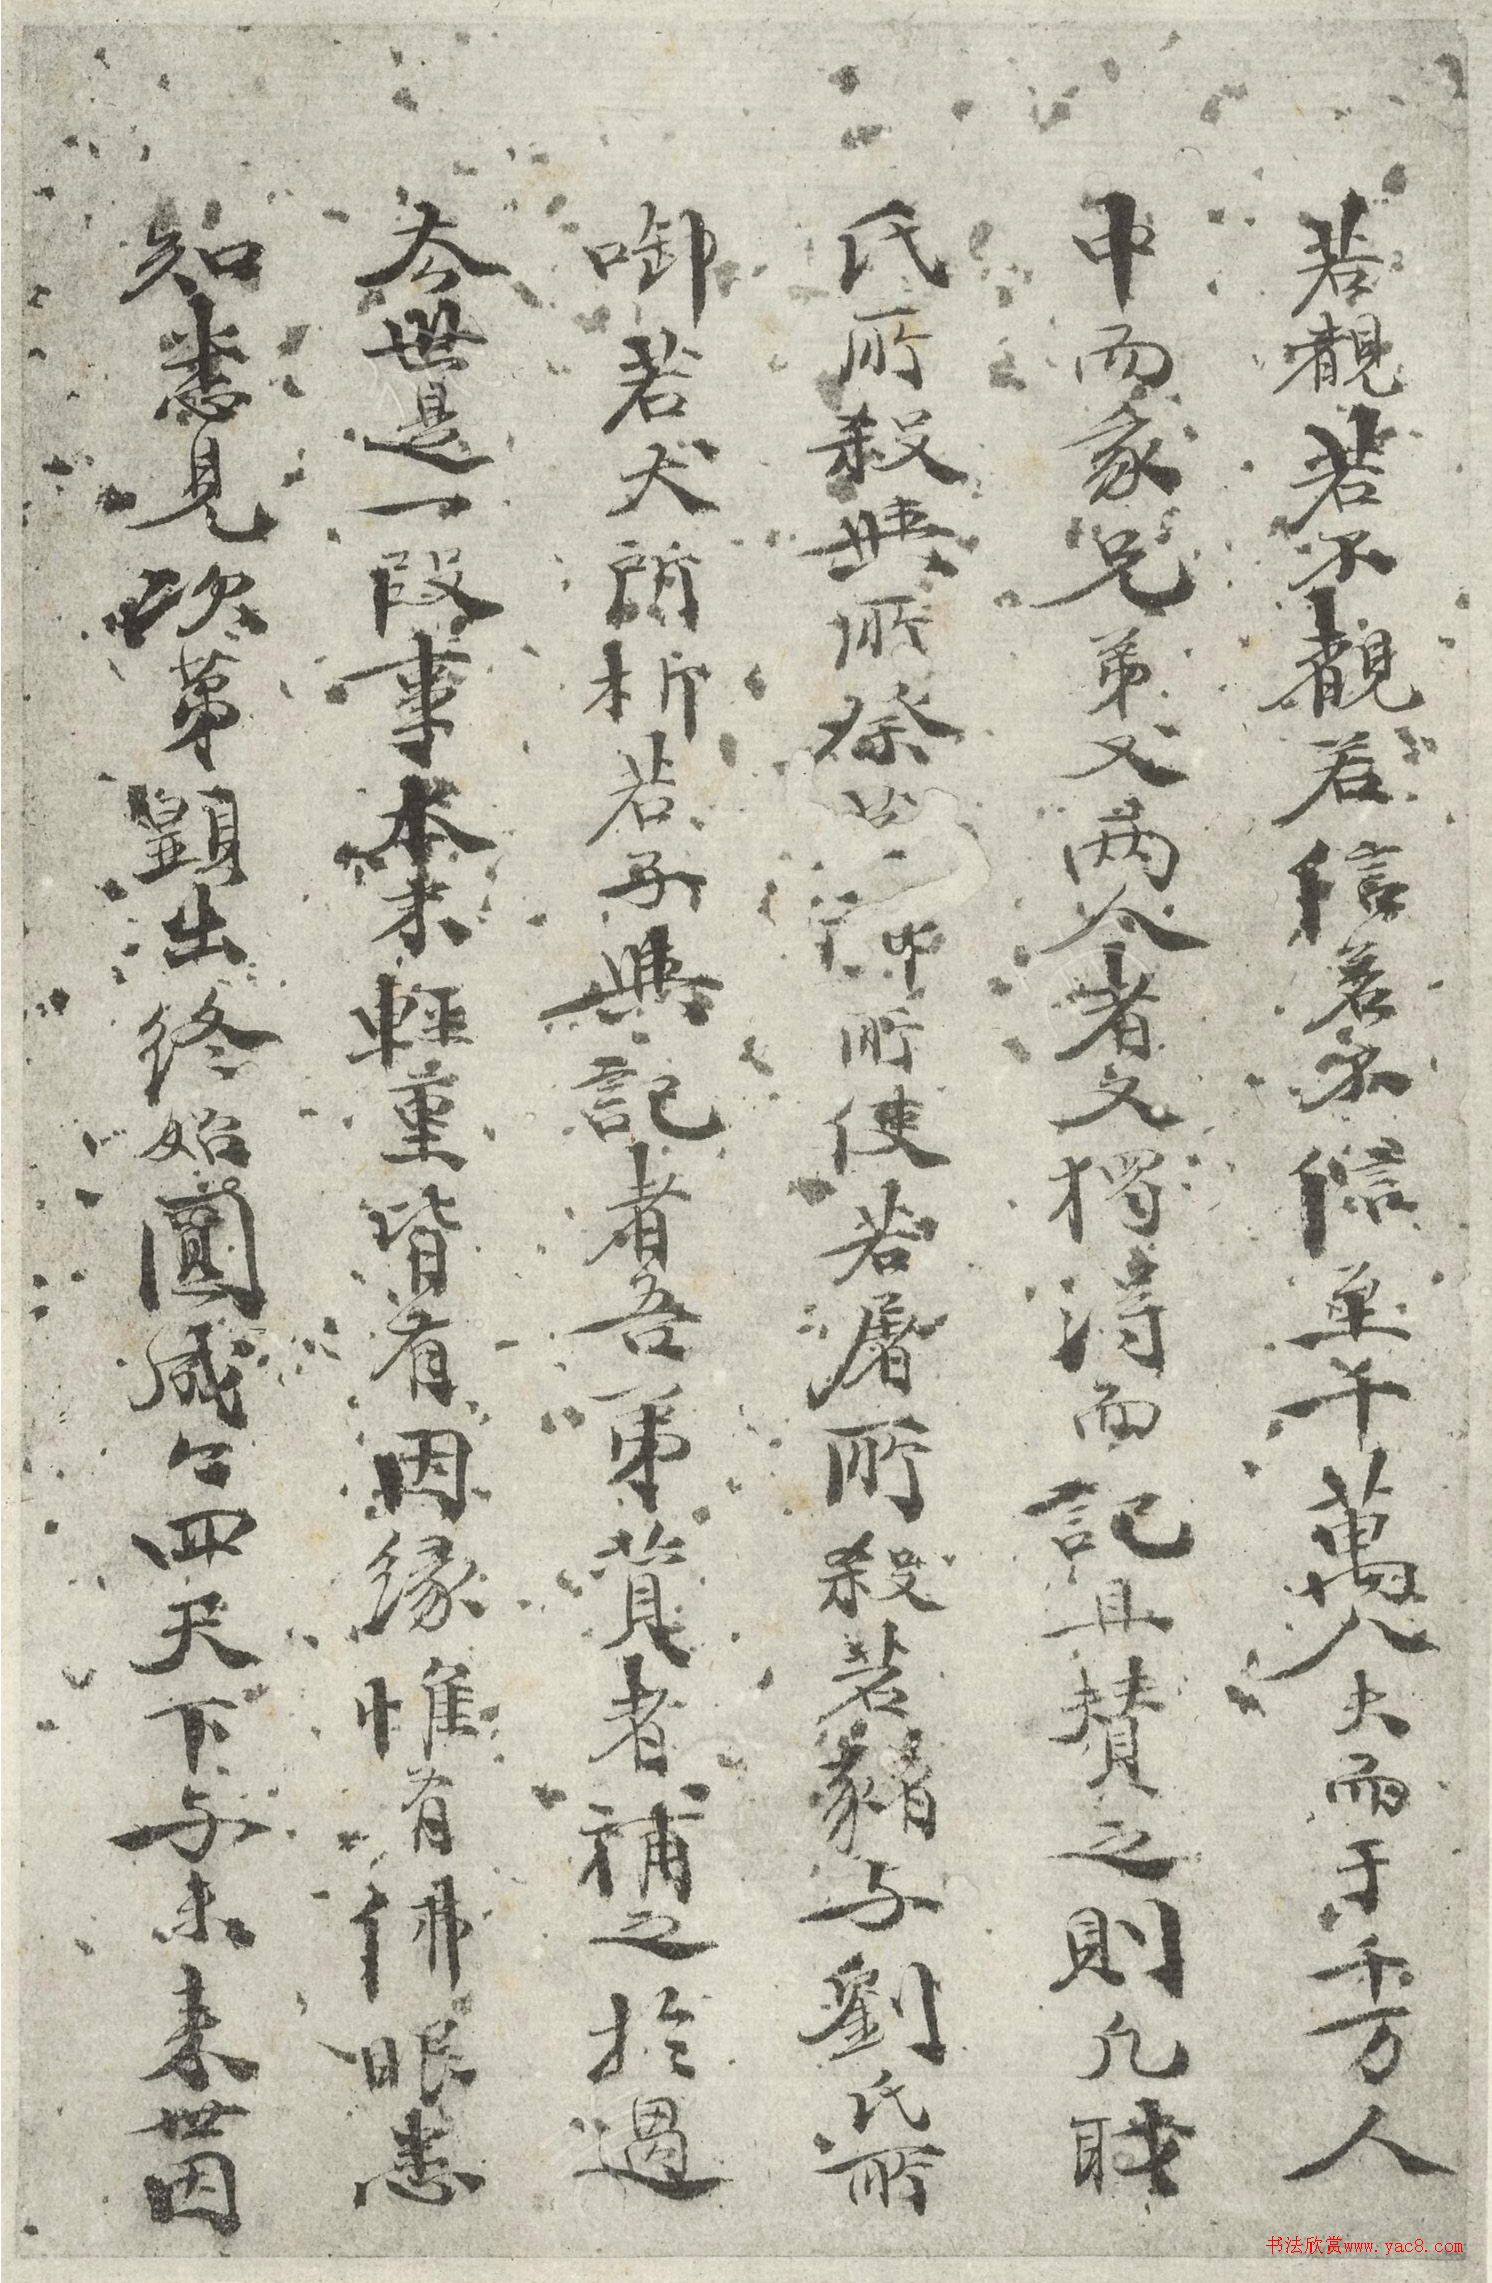 若覩若不覩若信若不信至千萬人大而于千万人
中而象兄弟父兩人者又獨得而記且贊之則凡賤
氏所殺與所祭 神所使若屠所殺若豬与劉氏所
啣若犬所析若子與記者吾弟贊者補之於過
去世是一段事本末輕重皆有因緣惟有佛眼悉
知悉見次第顯出終始圓成今四天下与未來世因
书法欣赏www.yac8.com